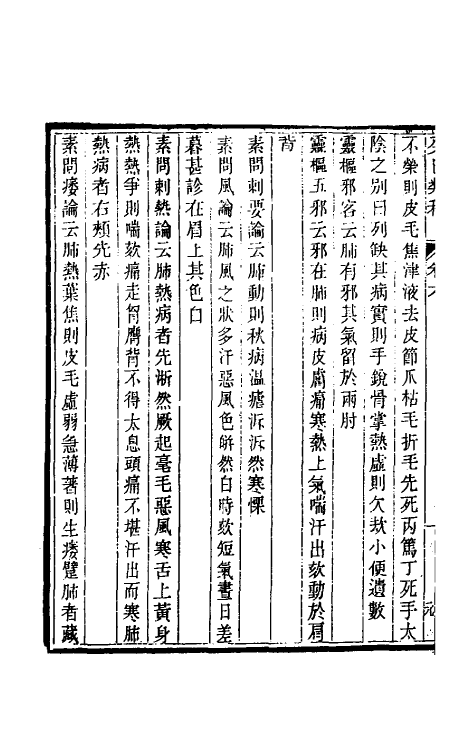 不榮則皮毛焦津液去皮節爪枯毛折毛先死丙篤丁死手太
陰之別曰列缺其病實則手銳骨掌熱虛則欠欬小便遺數
靈樞邪客云肺有邪其氣留於兩肘
靈樞五邪云邪在肺則病皮膚痛寒熱上氣喘汗出欬動於肩
背
素問刺要論云肺動則秋病溫瘧泝泝然寒慄
素問風論云肺風之狀多汗惡風色皏然白時欬短氣晝日差
暮甚診在眉上其色白
素問刺熱論云肺熱病者先淅然厥起毫毛惡風寒舌上黃身
熱熱爭則喘欬痛走胷膺背不得太息頭痛不堪汗出而寒肺
熱病者右頰先赤
素問痿論云肺熱葉焦則皮毛虛弱急薄著則生痿躄肺者藏